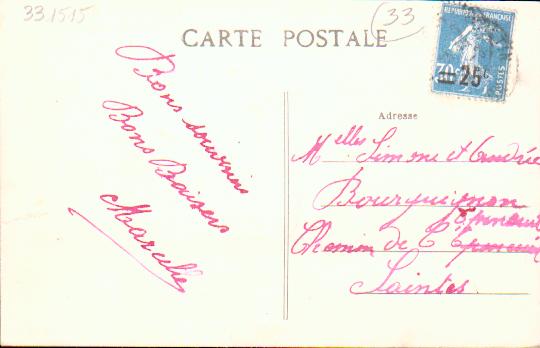 33 1515
33
CARTE POSTALE
REPUBLIQUE FRANÇAISE
30c 25c
POSTES
Adresse
Bons souvenirs
Bons Baisers
Marcelle
Melles Simone et Andrée
Bourguignon
Chemin de
Saintes.